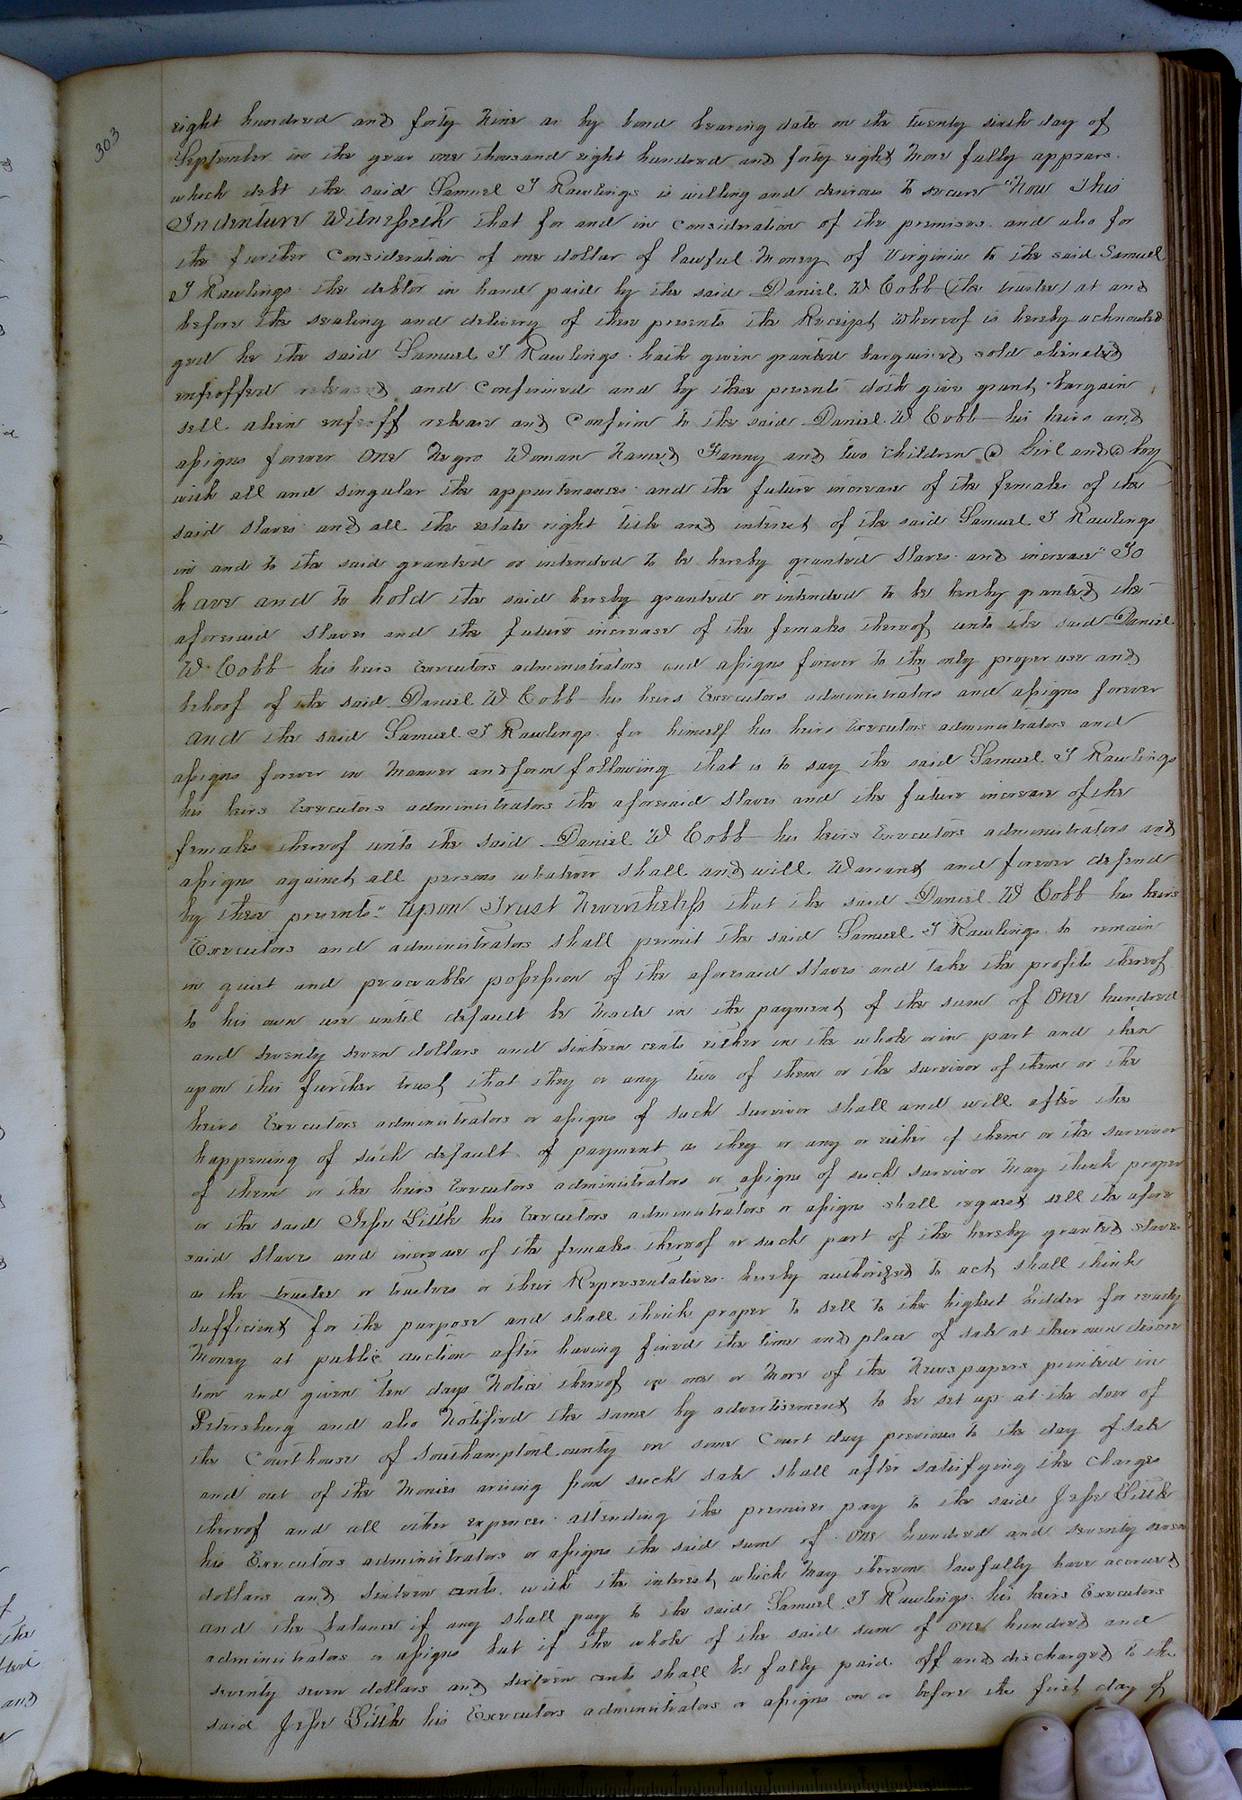 303
eight hundred and forty Nine as by bond bearing date on the twenty sixth day of
September in the year one thousand eight hundred and forty eight More fully appears.
which debt the said Samuel T Rawlings is willing and desirous to secure "Now This
Indenture Witnesseth that for and in consideration of the premises and also for
the further Consideration of one dollar of lawful Money of Virginia to the said Samuel
T Rawlings the debtor in hand paid by the said Daniel W Cobb (the trustee) at and
before the sealing and delivery of these presents the Receipt Whereof is hereby acknowled
ged he the said Samuel T Rawlings hath given granted bargained sold aliened
enfeoffed released and Confirmed and by these presents doth give grant bargain
sell alien enfeoff release and Confirm to the said Daniel W Cobb his heirs and
assigns forever One Negro Woman Named Fanny and two children @ Girl and @ boy
with all and singular the appurtenances and the future increase of the females of the
said slaves and all the estate right title and interest of the said Samuel T Rawlings
in and to the said granted or intended to be hereby granted slaves and increase "To
have and to hold the said hereby granted or intended to be hereby granted the
aforesaid slaves and the future increase of the females thereof unto the said Daniel
W Cobb his heirs Executors administrators and assigns forever to the only proper use and
behoof of the said Daniel W Cobb his heirs Executors administrators and assigns forever
and the said Samuel T Rawlings for himself his heirs Executors administrators and
assigns forever in Manner and form following that is to say the said Samuel T Rawlings
his heirs Executors administrators the aforesaid slaves and the future increase of the
females thereof unto the said Daniel W Cobb his heirs Executors administrators and
assigns against all persons whatever shall and will Warrant and forever defend
by these presents" Upon Trust Nevertheless that the said Daniel W Cobb his heirs
Executors and administrators shall permit the said Samuel T Rawlings to remain
in quiet and peaceable possession of the aforesaid slaves and take the profits thereof
to his own use until default be Made in the payment of the sum of One hundred
and seventy seven dollars and sixteen cents either in the whole or in part and then
upon this further trust that they or any two of them or the survivor of them or the
heirs Executors administrators or assigns of such survivor shall and will after the
happening of such default of payment as they or any or either of them or the survivor
of them or the heirs Executors administrators or assigns of such survivor May think proper
or the said Jesse Little his Executors administrators or assigns shall request sell the afore
said slaves and increase of the females thereof or such part of the hereby granted slaves
as the trustee or trustees or their Representatives hereby authorized to act shall think
sufficient for the purpose and shall think proper to sell to the highest bidder for ready
Money at public auction after having fixed the time and place of sale at their own discre
tion and given ten days Notice thereof in one or More of the Newspapers printed in
Petersburg and also Notified the same by advertisement to be set up at the door of
the Courthouse of Southampton County on some Court day previous to the day of sale
and out of the Monies arising from such sale shall after satisfying the Charges
thereof and all other expences attending the premises pay to the said Jesse Little
his Executors administrators or assigns the said sum of One hundred and seventy seven
dollars and sixteen cents with the interest which May thereon lawfully have accrued
and the balance if any shall pay to the said Samuel T Rawlings his heirs Executors
administrators or assigns but if the whole of the said sum of One hundred and
seventy seven dollars and sixteen cents shall be fully paid off and discharged to the
said Jesse Little his Executors administrators or assigns on or before the first day of